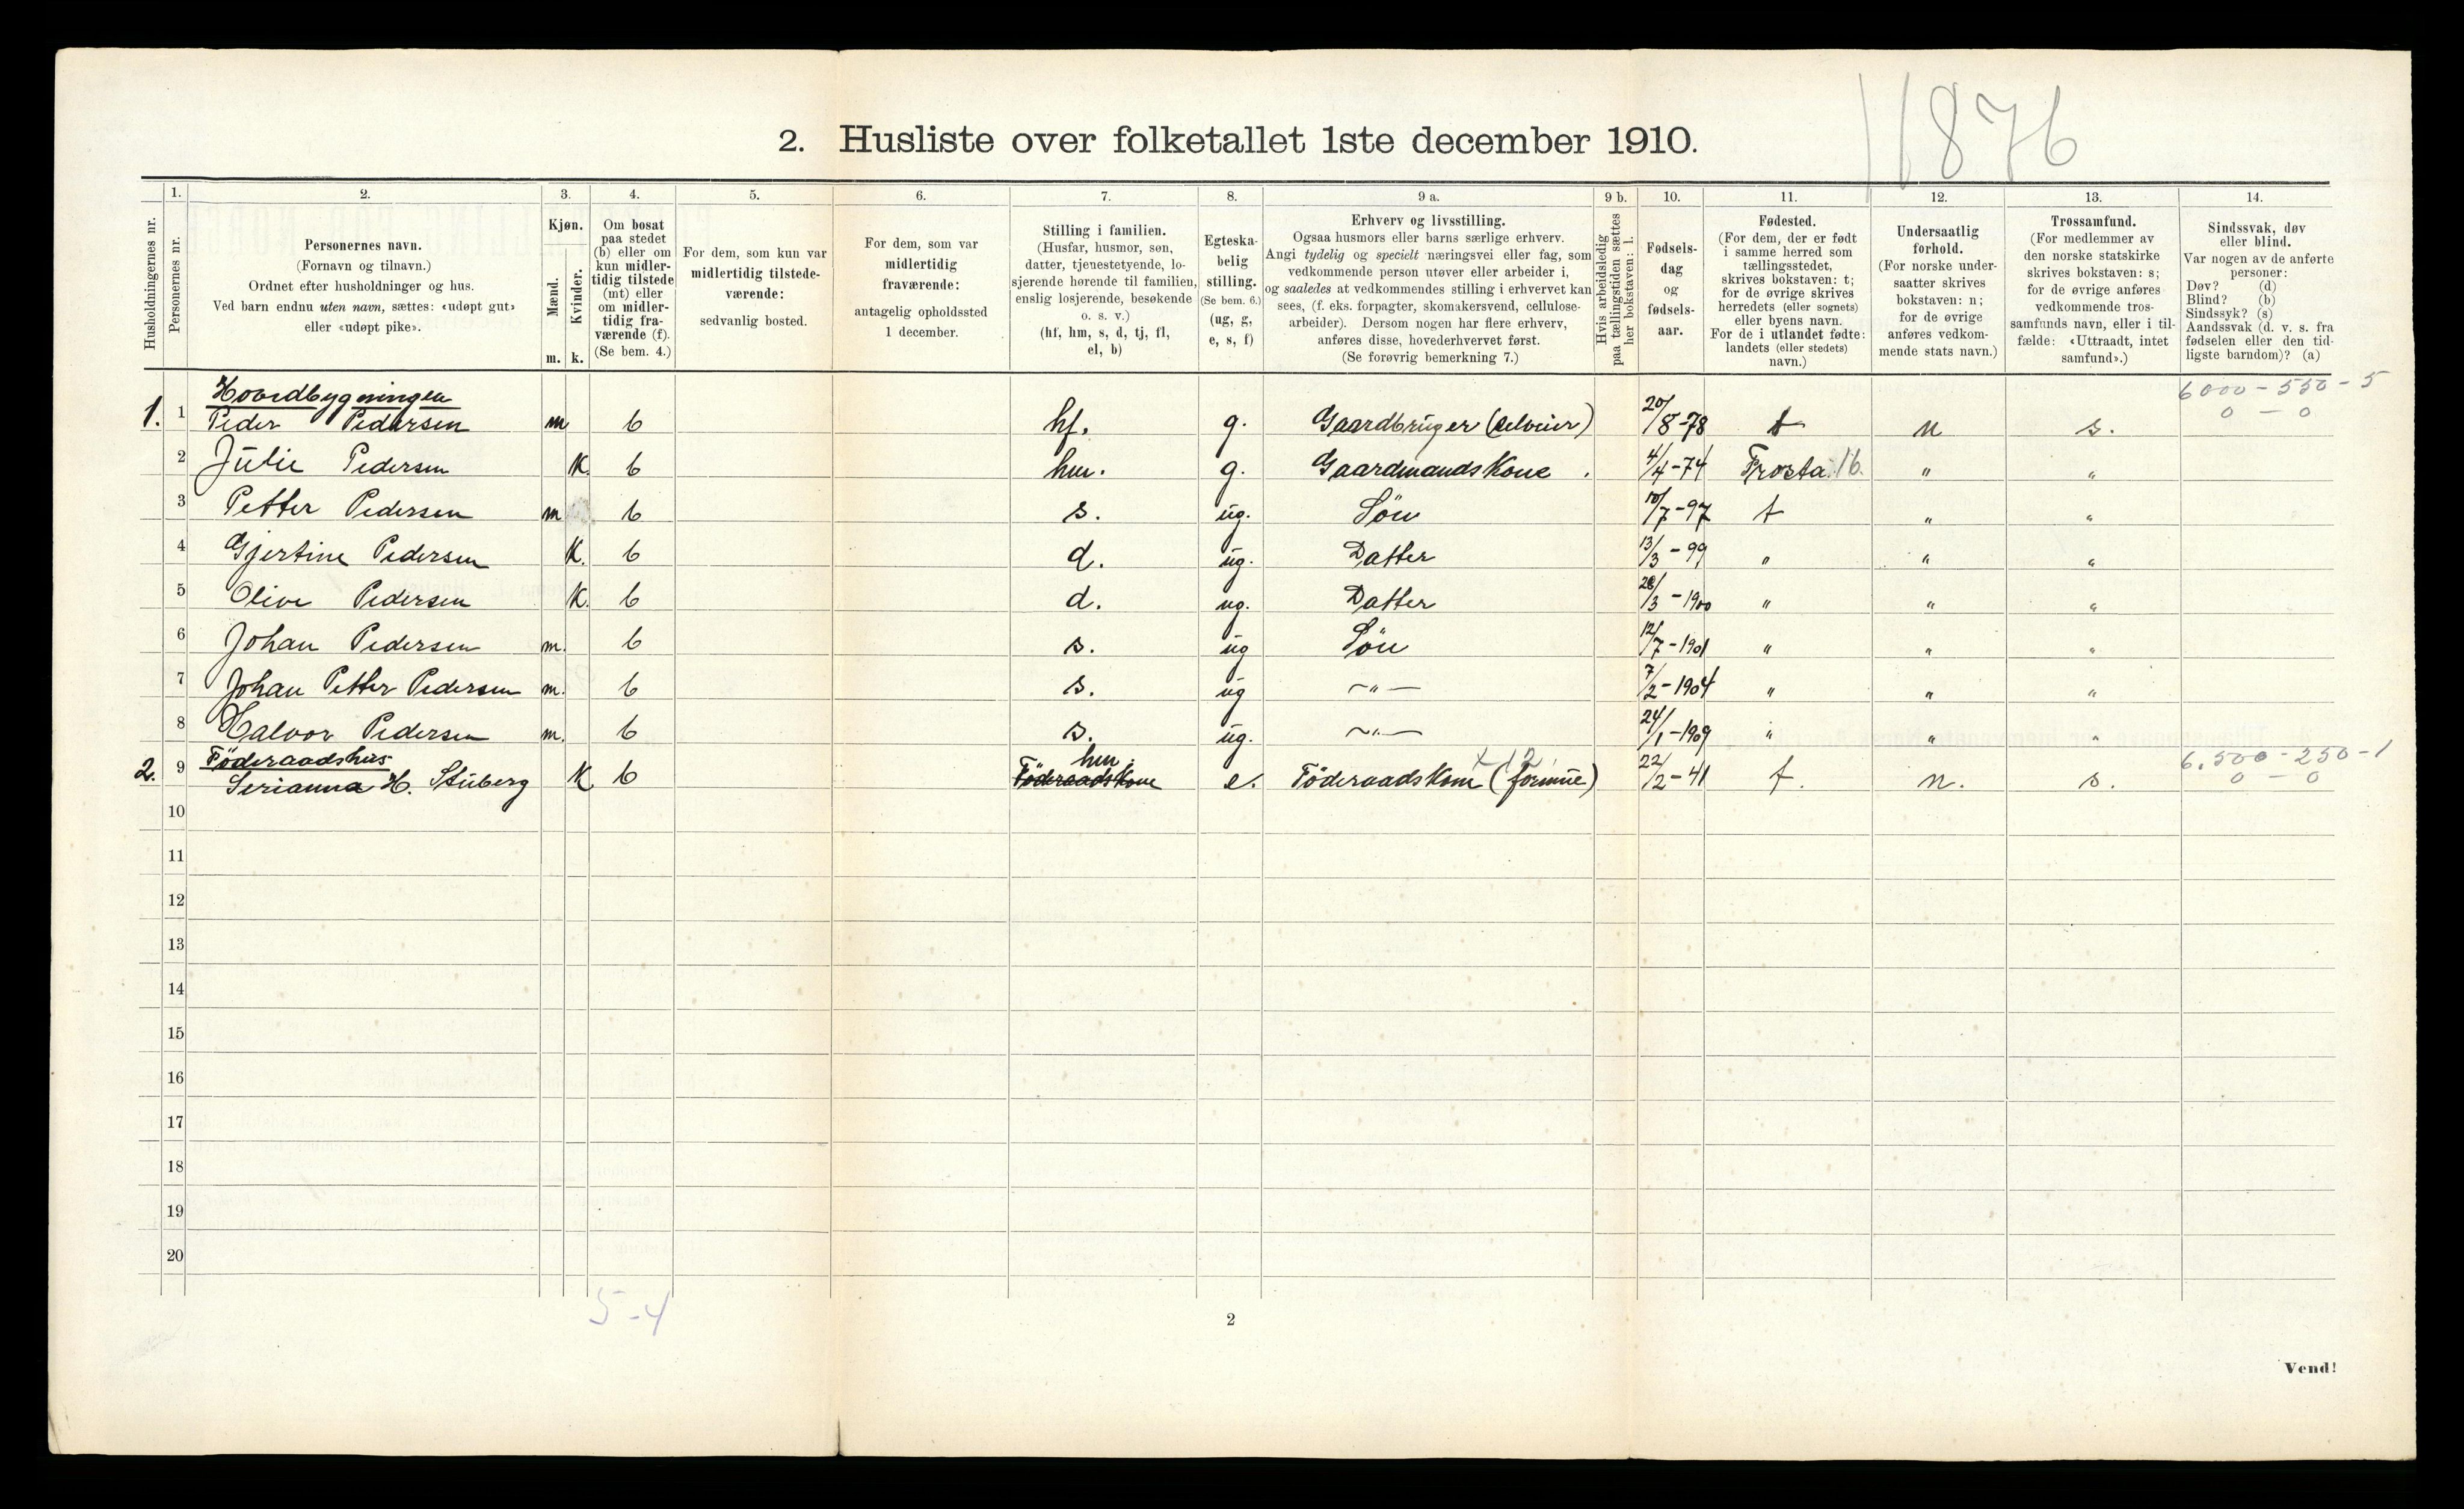 1876
2. Husliste over folketallet 1ste december 1910.
Husholdningernes nr.
1.
Personernes nr.
2.
Personernes navn.
(Fornavn og tilnavn.)
Ordnet efter husholdninger og hus.
Ved barn endnu uten navn, sættes: «udøpt gut»
eller «udøpt pike».
3.
Kjøn.
Mænd.
Kvinder.
m. k.
4.
Om bosat
paa stedet
(b) eller om
kun midler-
tidig tilstede
(mt) eller
om midler-
tidig fra-
værende (f).
(Se bem. 4.)
5.
For dem, som kun var
midlertidig tilstede-
værende:
sedvanlig bosted.
6.
For dem, som var
midlertidig
fraværende:
antagelig opholdssted
1 december.
7.
Stilling i familien.
(Husfar, husmor, søn,
datter, tjenestetyende, lo-
sjerende hørende til familien,
enslig losjerende, besøkende
o. s. v.)
(hf, hm, s, d, tj, fl,
el, b)
8.
Egteska-
belig
stilling.
(Se bem. 6.)
(ug, g,
e, s, f)
9 a.
Erhverv og livsstilling.
Ogsaa husmors eller barns særlige erhverv.
Angi tydelig og specielt næringsvei eller fag, som
vedkommende person utøver eller arbeider i,
og saaledes at vedkommendes stilling i erhvervet kan
sees, (f. eks. forpagter, skomakersvend, cellulose-
arbeider). Dersom nogen har flere erhverv,
anføres disse, hovederhvervet først.
(Se forøvrig bemerkning 7.)
9 b.
Hvis arbeidsledig
paa tællingstiden sættes
her bokstaven: l.
10.
Fødsels-
dag
og
fødsels-
aar.
11.
Fødested.
(For dem, der er født
i samme herred som
tællingsstedet,
skrives bokstaven: t;
for de øvrige skrives
herredets (eller sognets)
eller byens navn.
For de i utlandet fødte:
landets (eller stedets)
navn.)
12.
Undersaatlig
forhold.
(For norske under-
saatter skrives
bokstaven: n;
for de øvrige
anføres vedkom-
mende stats navn.)
13.
Trossamfund.
(For medlemmer av
den norske statskirke
skrives bokstaven: s;
for de øvrige anføres
vedkommende tros-
samfunds navn, eller i til-
fælde: «Uttraadt, intet
samfund».)
14.
Sindssvak, døv
eller blind.
Var nogen av de anførte
personer:
Døv? (d)
Blind? (b)
Sindssyk? (s)
Aandssvak (d. v. s. fra
fødselen eller den tid-
ligste barndom)? (a)
Hovedbygningen 6000 - 550 - 5
1. 1 Peder Pedersen m b hf. g. Gaardbruger (selveier) 20/8-78 t n s. 0 - 0
2 Julie Pedersen K. b hm. g. Gaardmands Kone . 4/4-74 Frosta 16. " "
3 Petter Pedersen m b s. ug. Sön 10/7-97 t " "
4 Gjertine Pedersen K. b d. ug. Datter 13/3-99 " " "
5 Olive Pedersen K. b d. ug. Datter 28/3-1900 " " "
6 Johan Pedersen m. b s. ug Sön 12/7-1901 " " "
7 Johan Petter Pedersen m. b s. ug -"- 7/2-1904 " " "
8 Halvor Pedersen m. b s. ug. -"- 24/1-1909 " " "
Föderaadshus hm. x 12. 6.500 - 250 - 1
2. 9 Serianna H. Stuberg K b Föderaads Kone e. Föderaads Kone (formue) 22/2-41 t. n. s. 0 - 0
10
11
12
13
14
15
16
17
18
19
20
5-4
2
Vend!